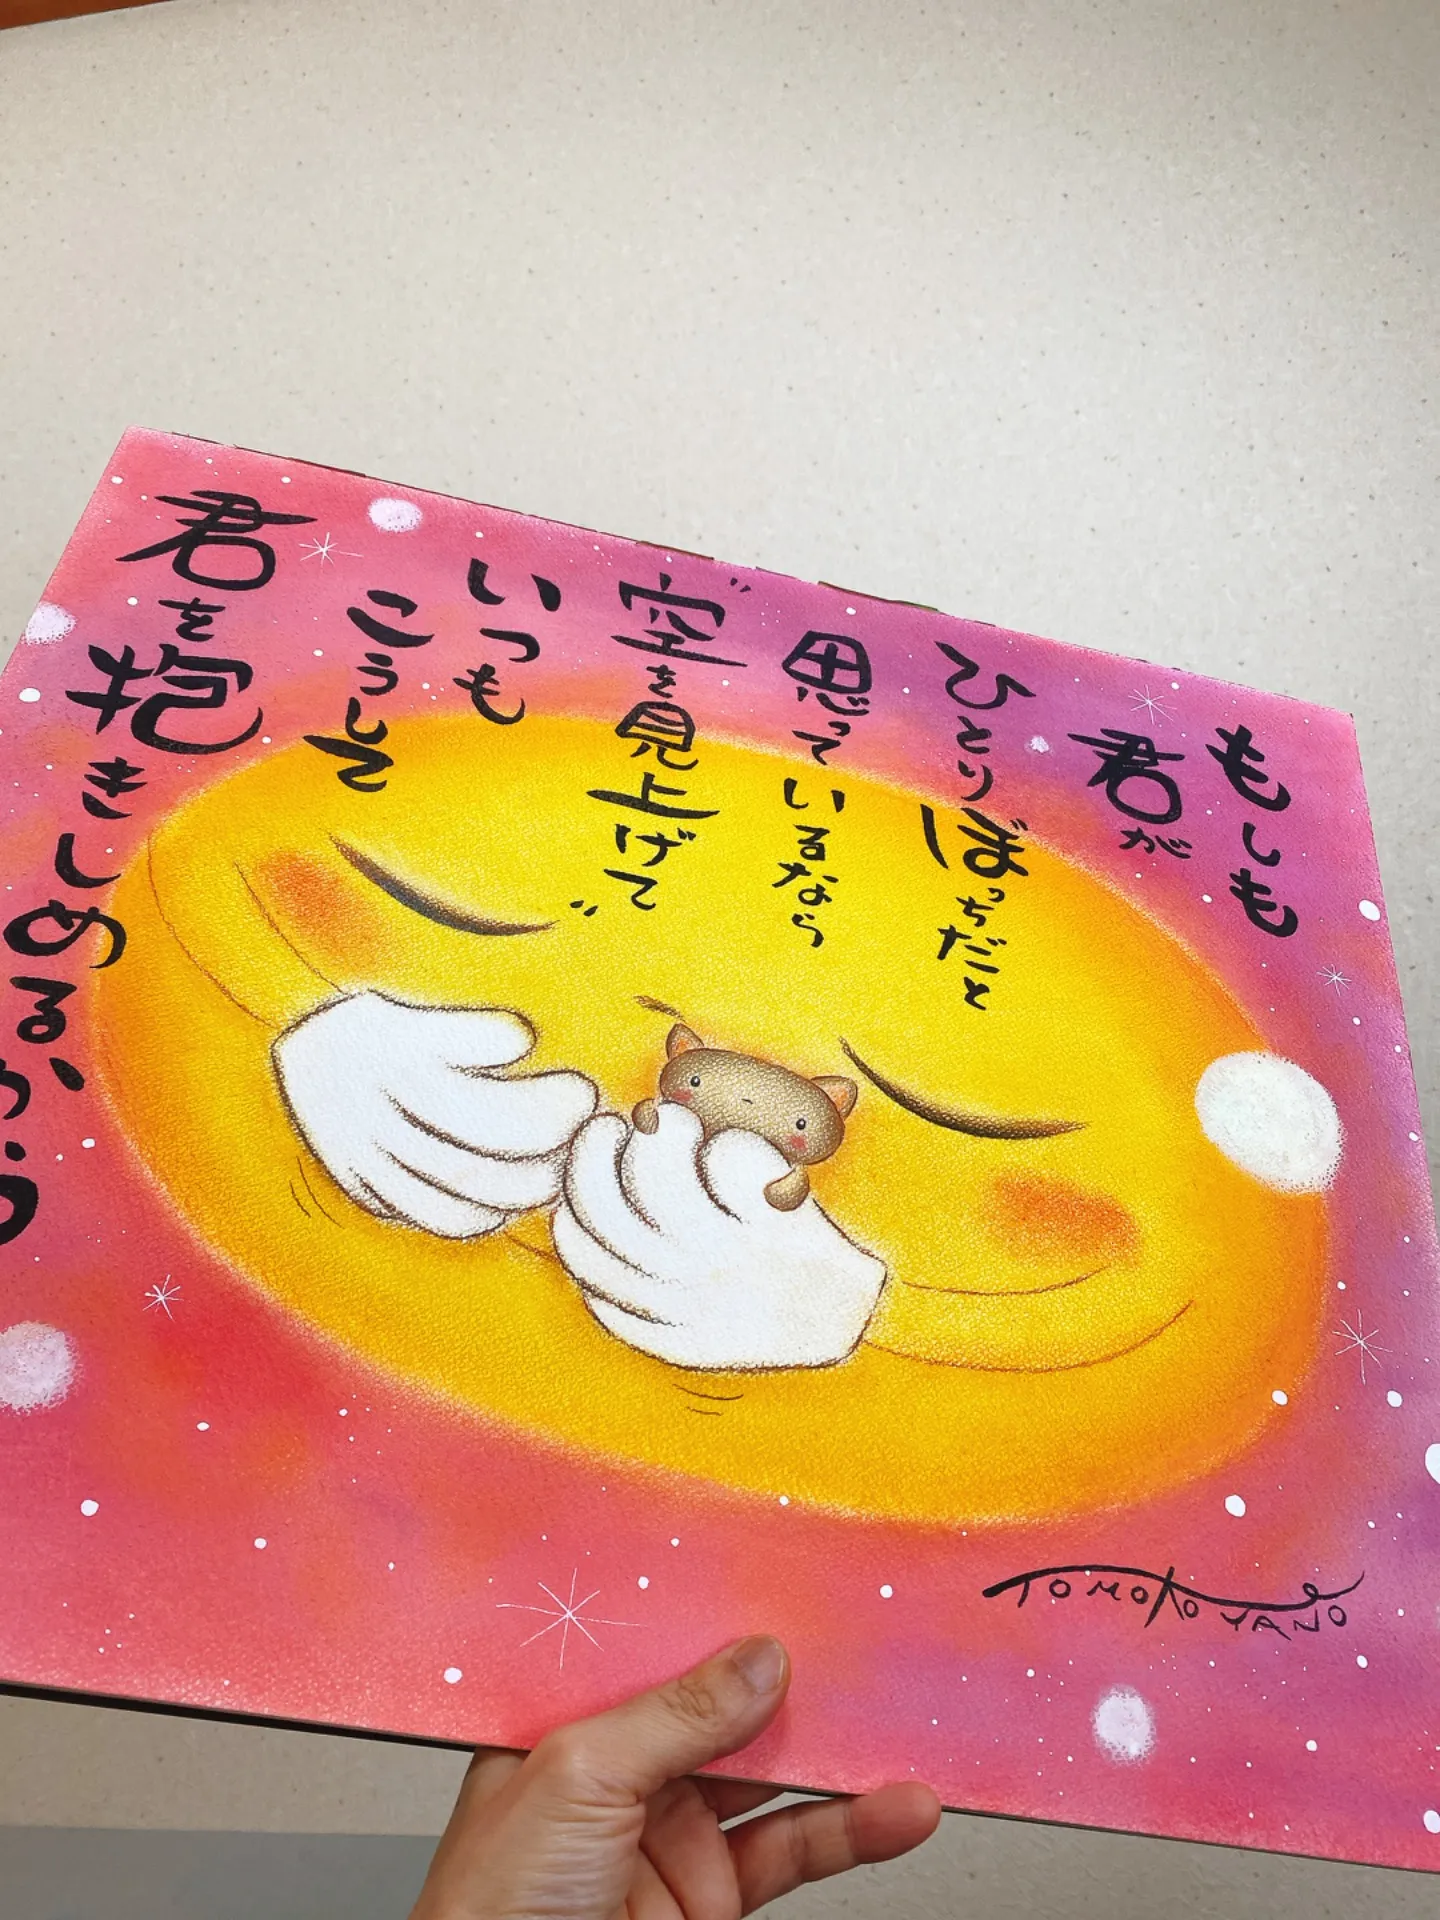 もしも
君が
ひとりぼっちだと
思っているなら
空を見上げて
いつも
こうして
君を抱きしめる、から
TOMOKO YANO